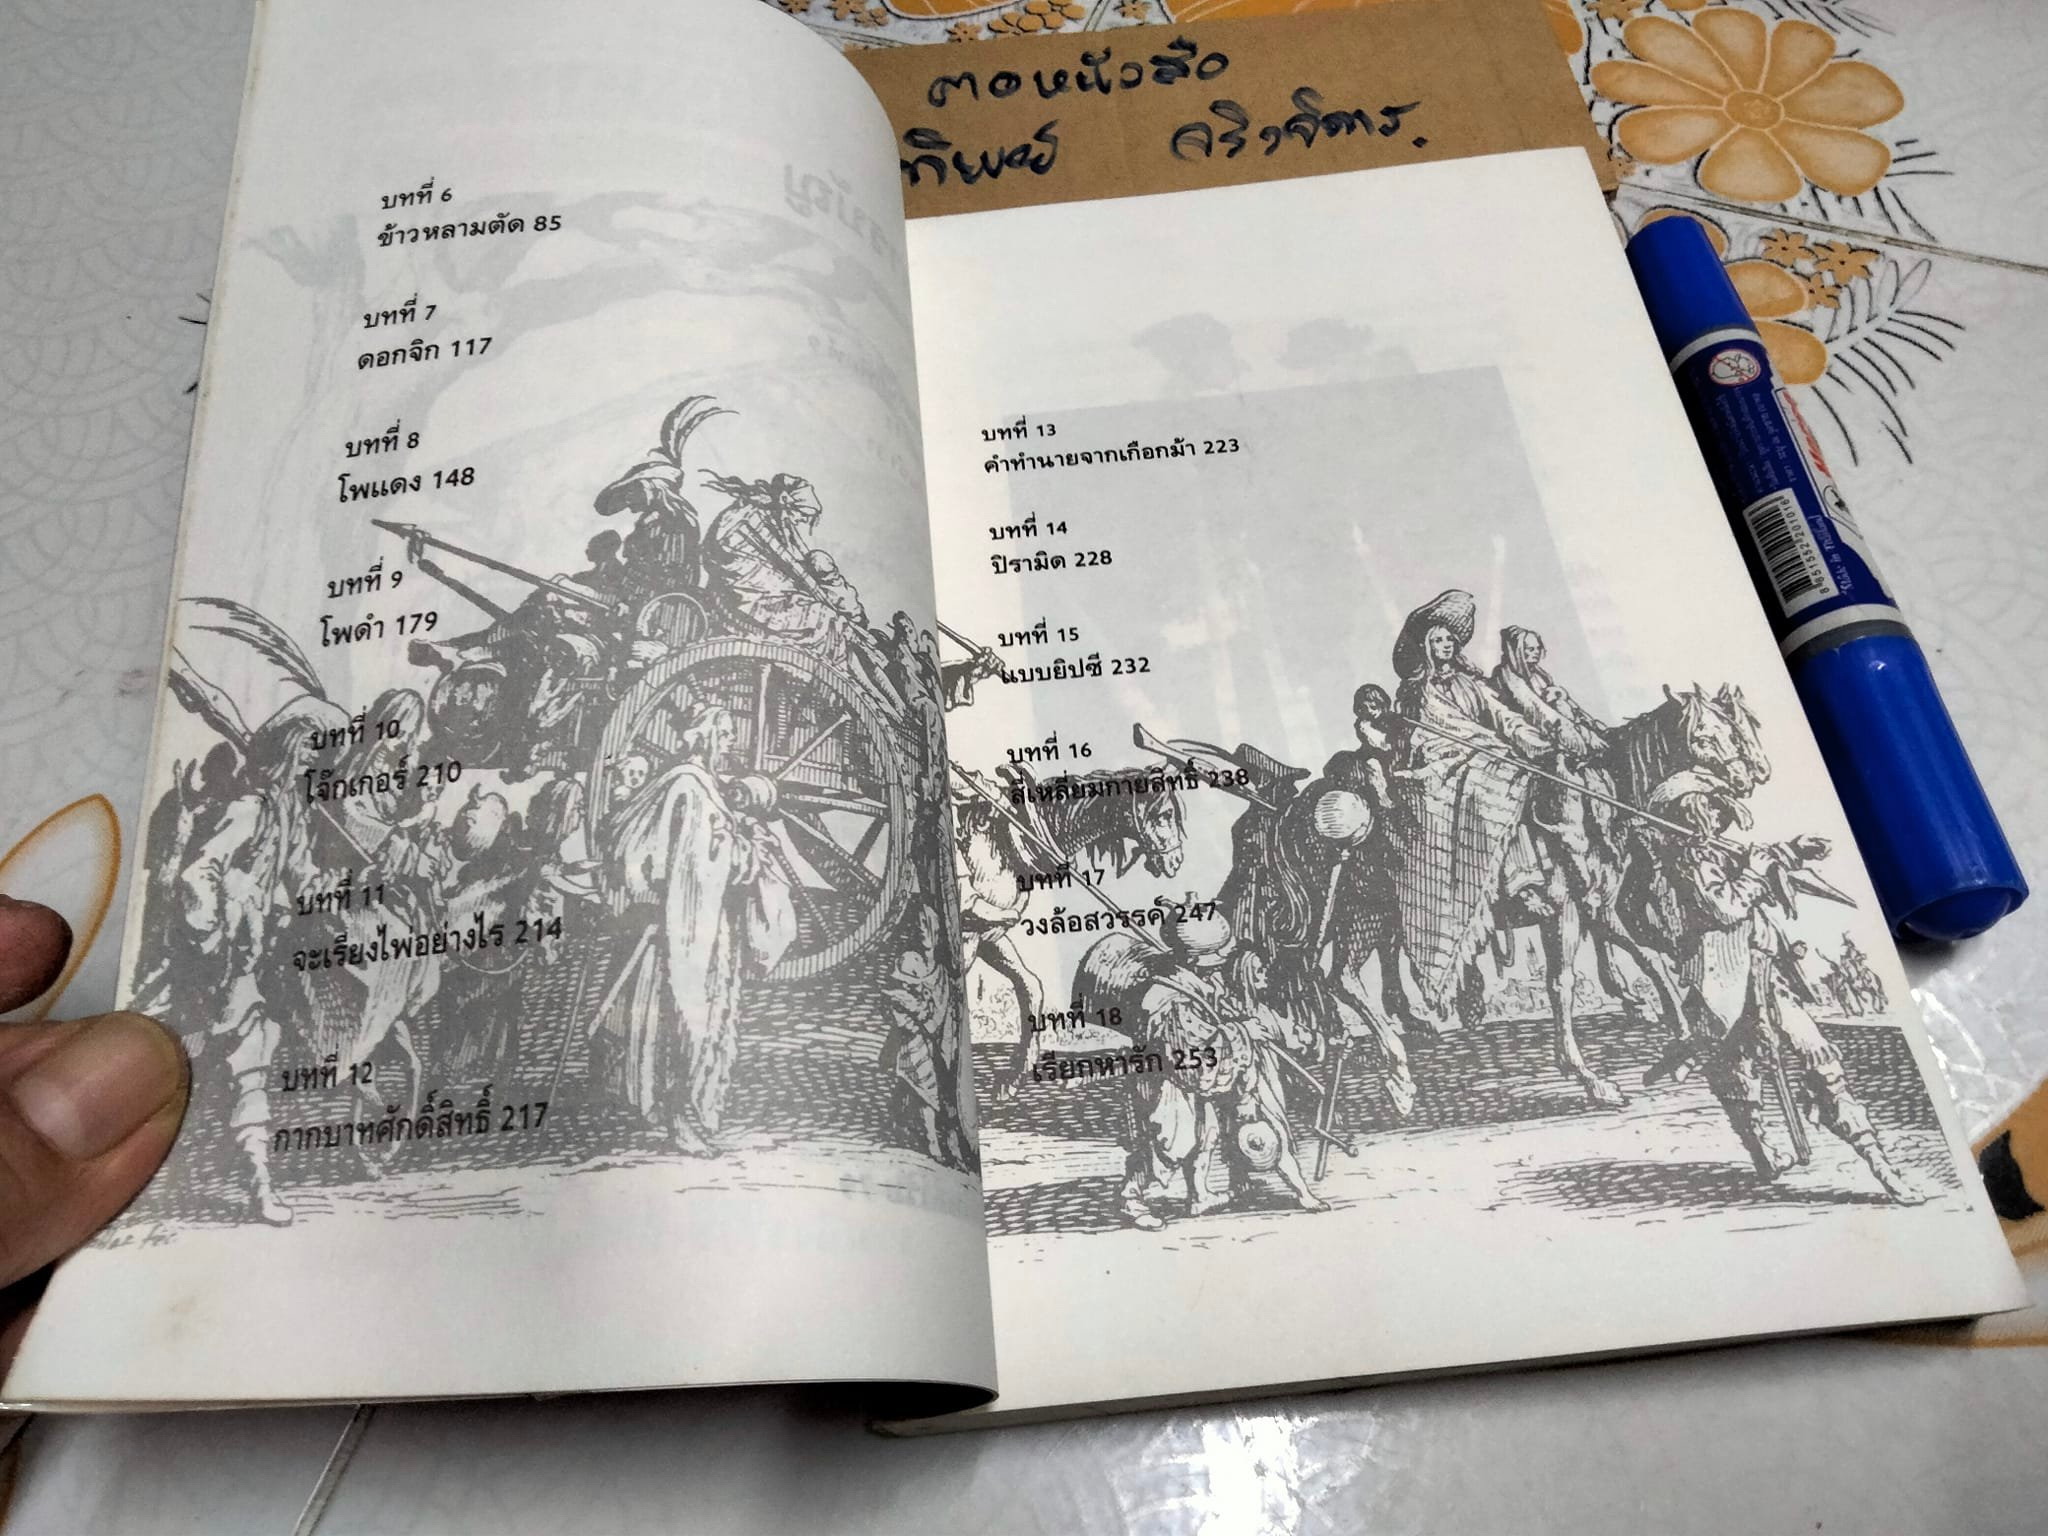 ตอหนังสือ
ทิพย์ จริงจิตร.
บทที่ 6
ข้าวหลามตัด 85
บทที่ 7
ดอกจิก 117
บทที่ 8
โพแดง 148
บทที่ 9
โพดำ 179
บทที่ 10
โจ๊กเกอร์ 210
บทที่ 11
จะเรียงไพ่อย่างไร 214
บทที่ 12
กากบาทศักดิ์สิทธิ์ 217
บทที่ 13
คำทำนายจากเกือกม้า 223
บทที่ 14
ปิรามิด 228
บทที่ 15
แบบยิปซี 232
บทที่ 16
สี่เหลี่ยมกายสิทธิ์ 238
บทที่ 17
วงล้อสวรรค์ 247
บทที่ 18
เรียกหารัก 253
8851552201016